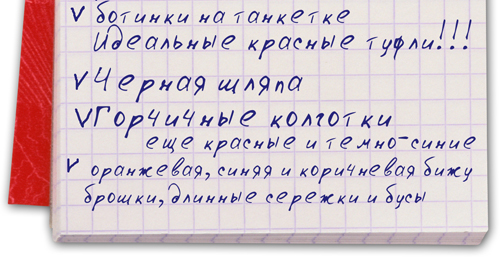 ✓ ботинки на танкетке
идеальные красные туфли!!!
✓ Черная шляпа
✓ Горчичные колготки
еще красные и темно-синие
✓ оранжевая, синяя и коричневая бижу
брошки, длинные сережки и бусы